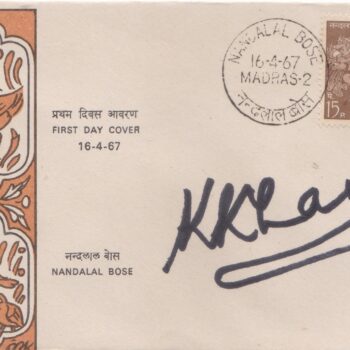 NANDALAL BOSE
16-4-67
MADRAS-2
नन्दलाल बोस
15
प्रथम दिवस आवरण
FIRST DAY COVER
16-4-67
नन्दलाल बोस
NANDALAL BOSE